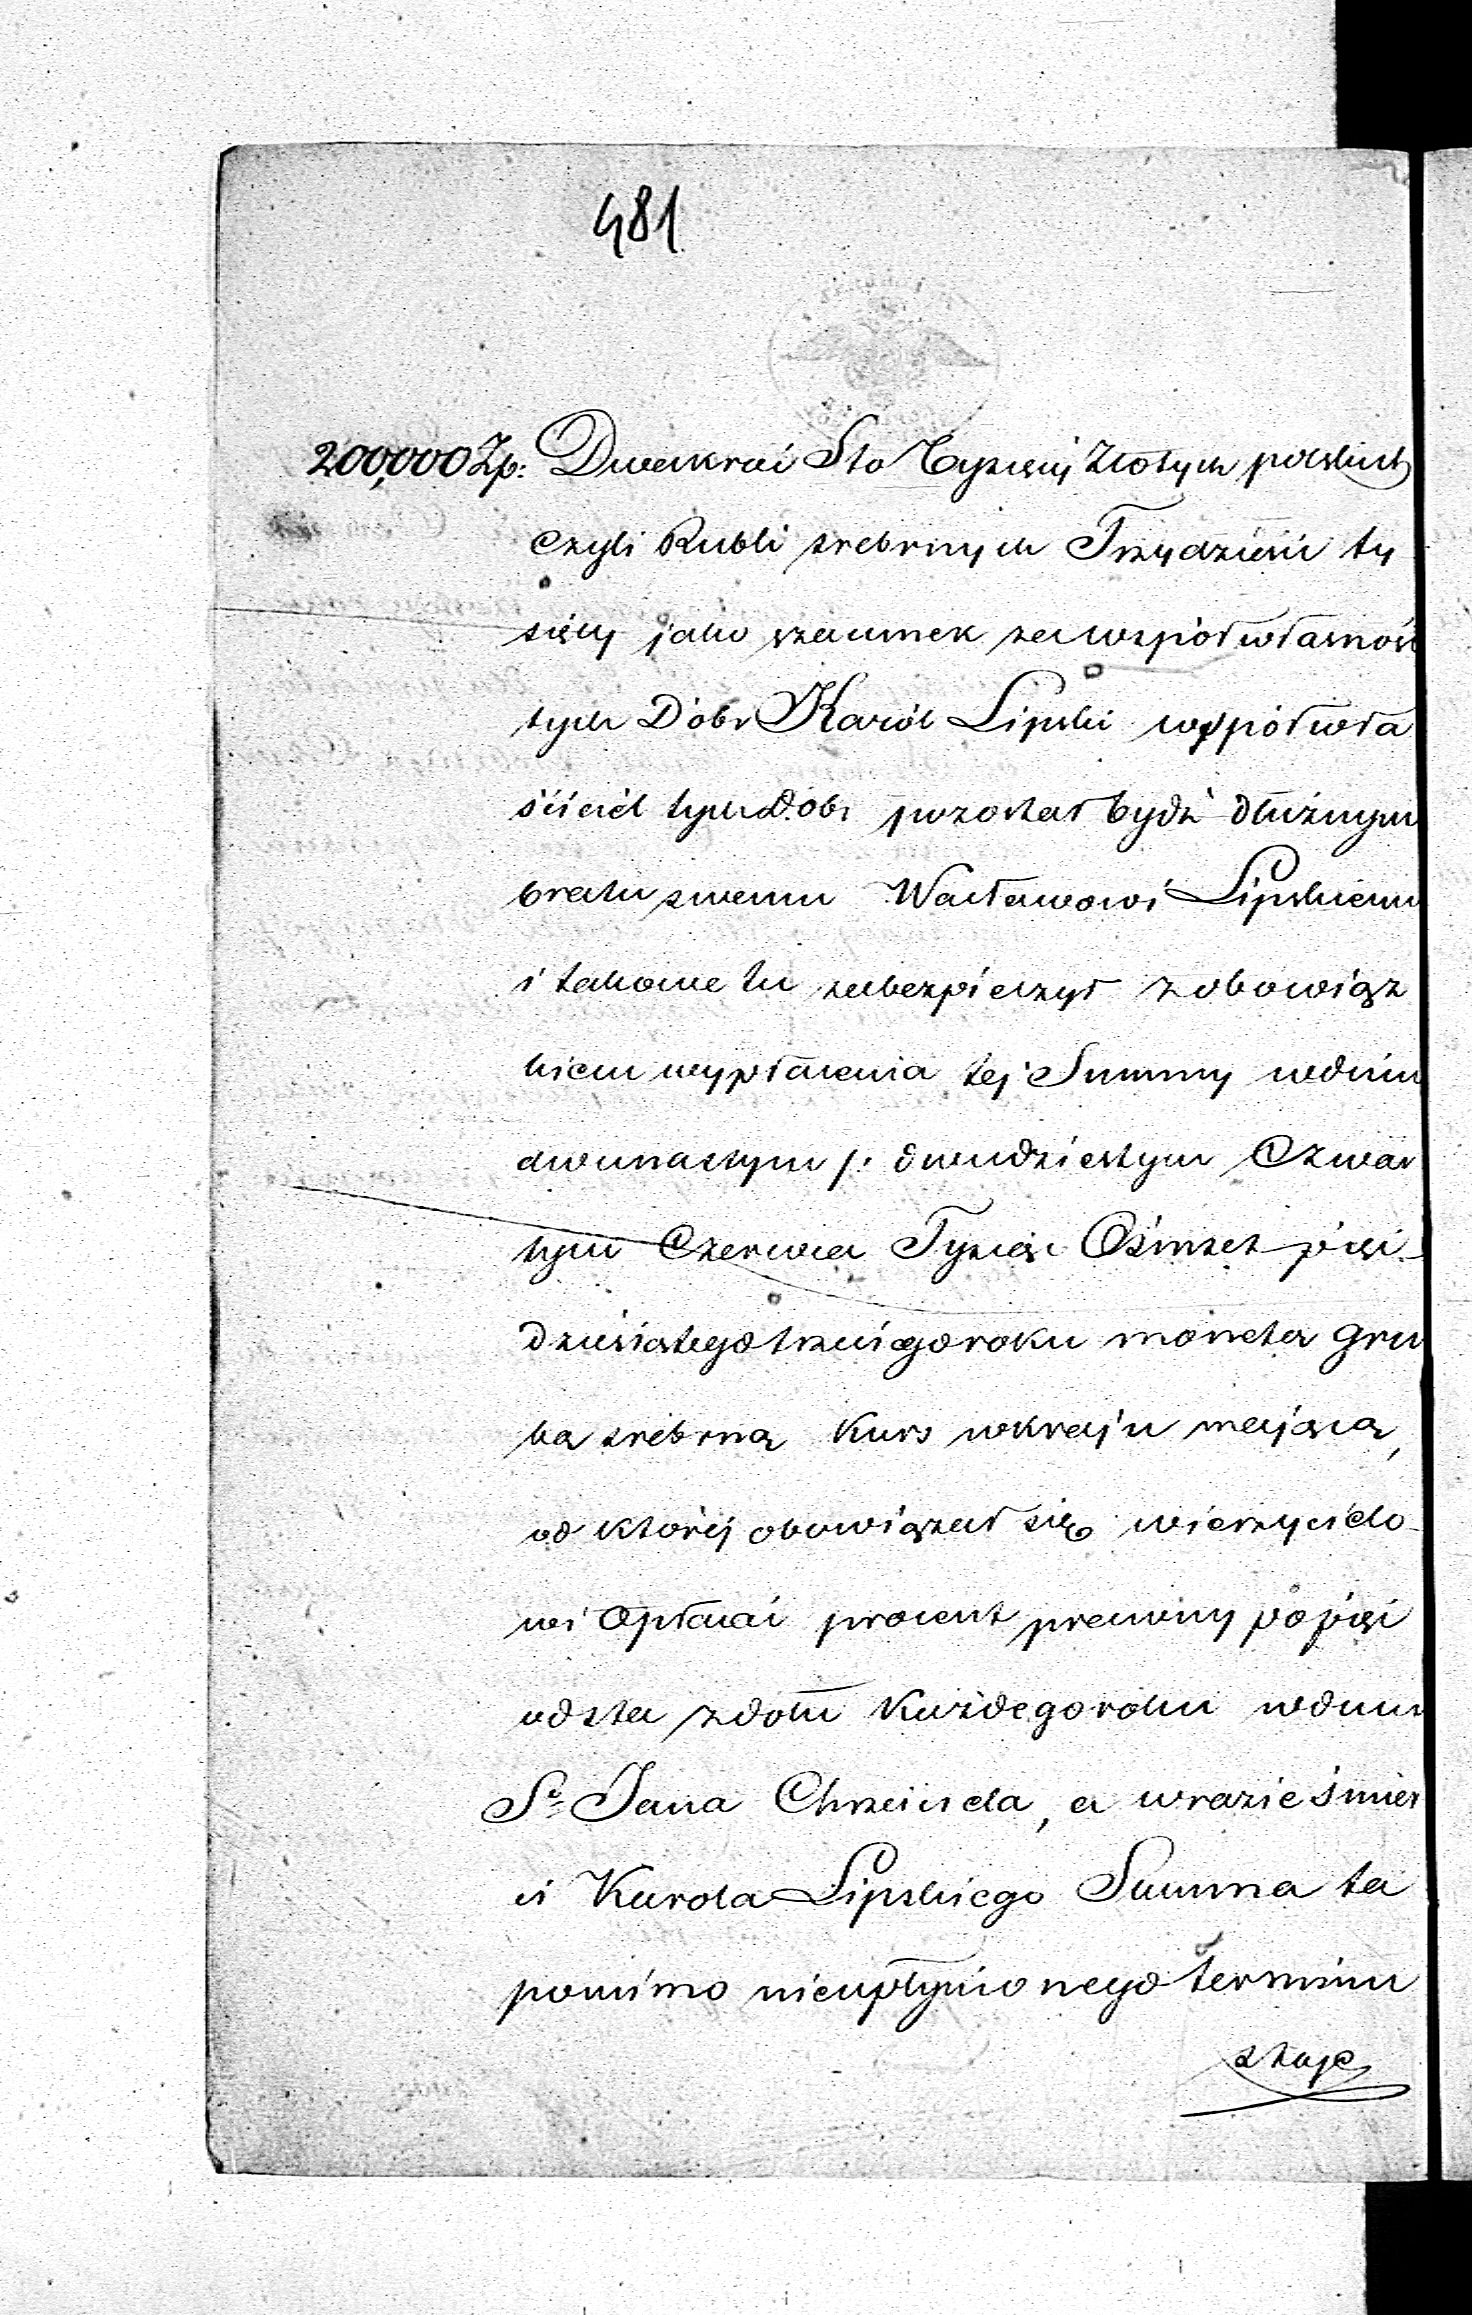 481
200,000 Zp. Dwakroć Sto Tysięcy Złotych polskich
czyli Rubli srebrnych Trzydzieści ty
sięcy jako szacunek za współwłasnoś
tych Dóbr Karól Lipski współwła
ściciel tych Dóbr pozostał bydź dłużnym
bratu swemu Wacławowi Lipskiemu
i takowe tu zabezpieczył z obowiąz
kiem wypłacenia tej Summy wdniu
dwunastym /. dwudziestym Czwar
tym Czerwca Tysiąc Ośmset pięć
dziesiątego trzeciego roku monetą gru
bą srebrną kurs wkraju mającą,
od której obowiązał się wierzycielo
wi Opłacać procent prawny po pięć
od sta zdołu każdego roku wdniu
Sgo Jana Chrzciciela, a wrazie śmier
ci Karola Lipskiego Summa ta
pomimo nieupłynionego terminu
staje